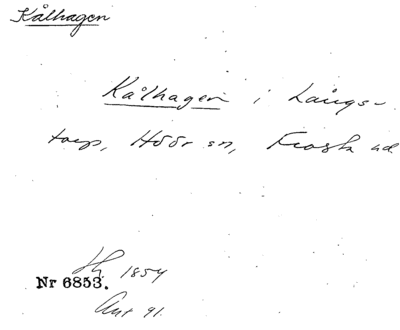 Kålhagen
Kålhagen i Långs-
torp, Höör sn, Frosta hd
Hf. 1854
Nr 6853.
Ant 91.